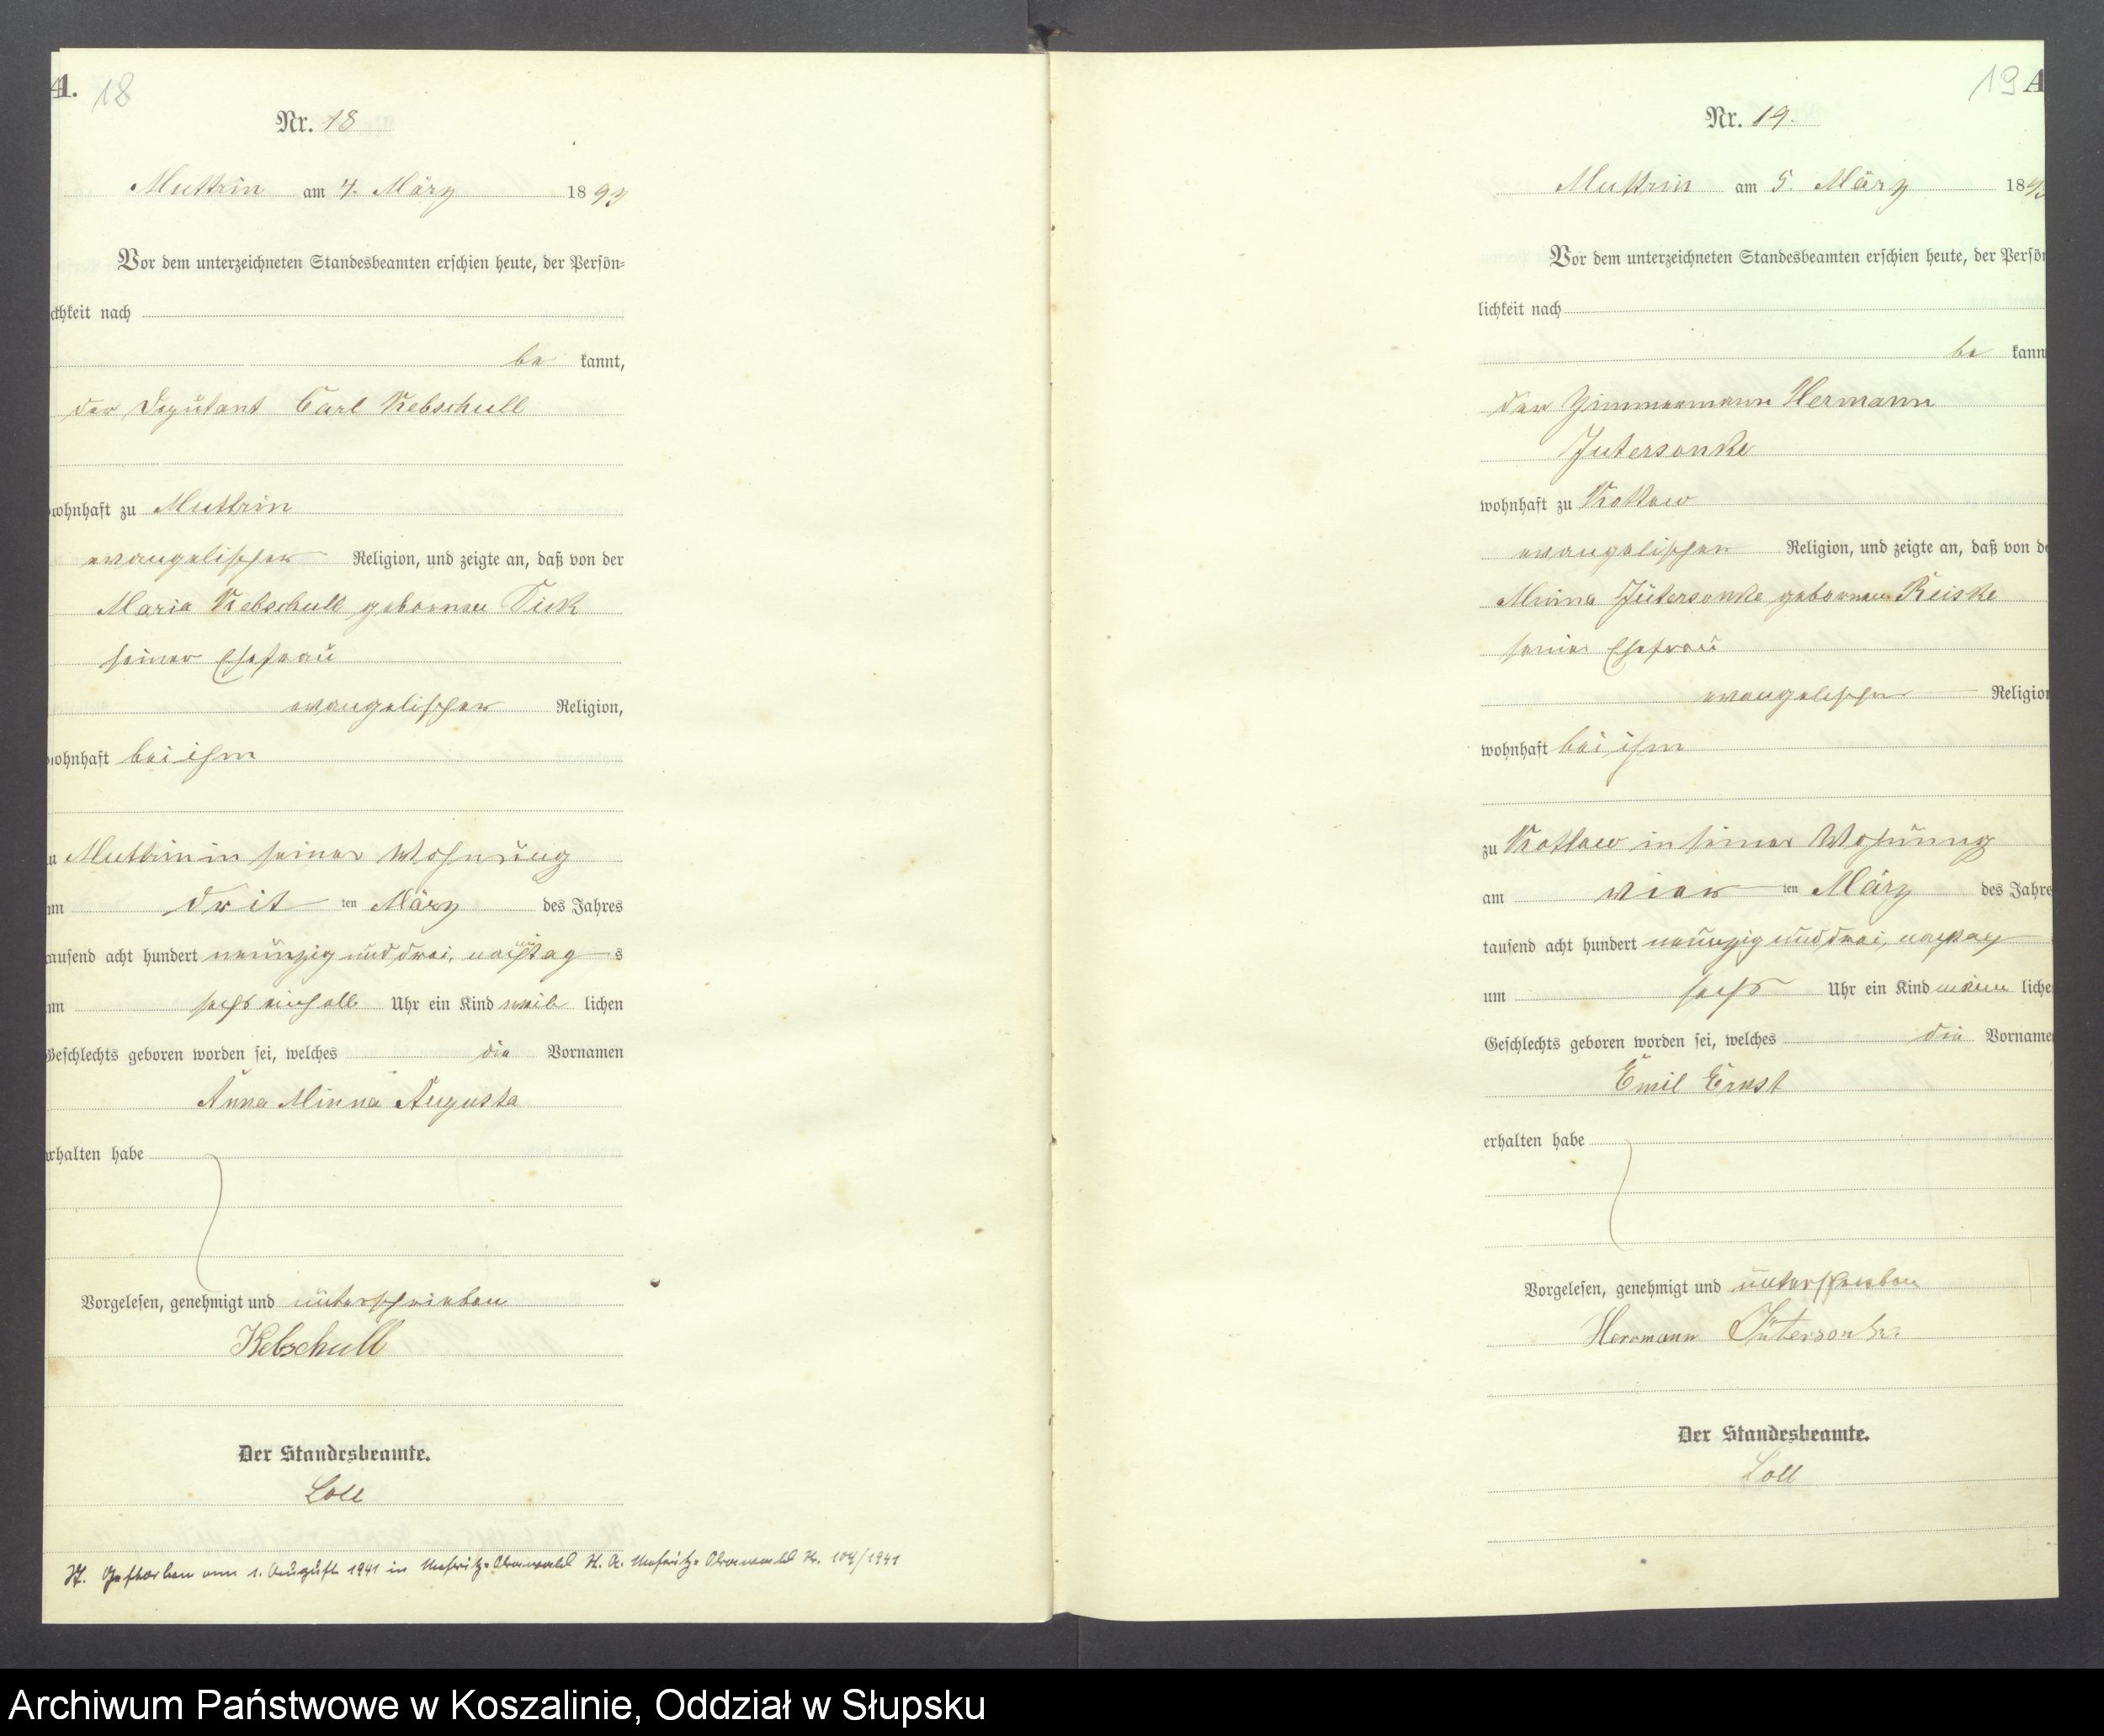 A. 18
Nr. 18
Muttrin am 4. März 1893
Vor dem unterzeichneten Standesbeamten erschien heute, der Persön-
lichkeit nach
be kannt,
der Deputant Carl Kebschull
wohnhaft zu Muttrin
evangelischer Religion, und zeigte an, daß von der
Maria Kebschull geborenen
seiner Ehefrau
evangelischer Religion,
wohnhaft bei ihm
Muttrin in seiner Wohnung
am dritten März des Jahres
tausend acht hundert neunzig und drei, nachmittags
um sechs einhalb Uhr ein Kind weiblichen
Geschlechts geboren worden sei, welches die Vornamen
Anna Minna Augusta
erhalten habe
Vorgelesen, genehmigt und unterschrieben
Kebschull
Der Standesbeamte.
Loll
Gestorben am 1. August 1941 in Meseritz-Obrawalde St. A. Meseritz-Obrawalde Nr. 104/1941
19 A
Nr. 19.
Muttrin am 5. März 1893
Vor dem unterzeichneten Standesbeamten erschien heute, der Persön
lichkeit nach
be kannt
der Zimmermann Hermann
Jutersonke
wohnhaft zu Kottow
evangelischer Religion, und zeigte an, daß von de
Minna Jütersonke geborenen Reiske
seiner Ehefrau
evangelischer Religion
wohnhaft bei ihm
zu Kottow in seiner Wohnung
am vier ten März des Jahre
tausend acht hundert neunzig und drei,
um sechs Uhr ein Kind männ liche
Geschlechts geboren worden sei, welches die Vorname
Emil Ernst
erhalten habe
Vorgelesen, genehmigt und unterschrieben
Herrmann Jütersonke.
Der Standesbeamte.
Loll
Archiwum Państwowe w Koszalinie, Oddział w Słupsku